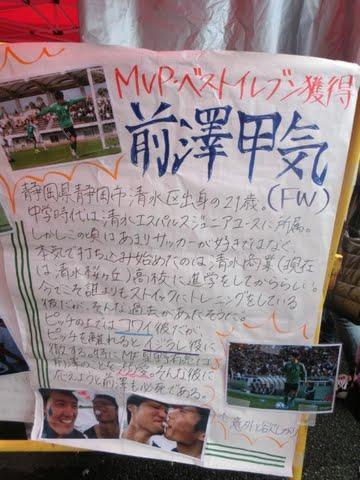 MVP・ベストイレブン獲得
前澤甲気
(FW)
静岡県静岡市清水区出身の21歳。
中学時代は清水エスパルスジュニアユースに所属。
しかしこの頃はあまりサッカーが好きではなく、
本気で打ち込み始めたのは清水商業(現在
は清水桜ヶ丘)高校に進学をしてかららしい。
今でこそ誰よりもストイックにトレーニングをしている
彼だが、そんな過去があったそうだ。
ピッチの上では コワイ 彼だが、
ピッチを離れるとイジラレ役に
徹する。特にMF
前澤のことを 大好き。そんな彼に
応えようと前澤も必死である。
意外と欲しがり